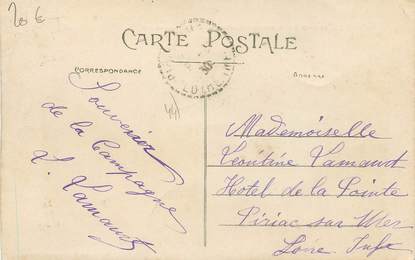 20 €
CARTE POSTALE
CORRESPONDANCE
ADRESSE
Souvenir
de la Campagne
L. Lamaud
Mademoiselle
Léontine Lamaud
Hotel de la Pointe
Piriac sur Mer
Loire Infre